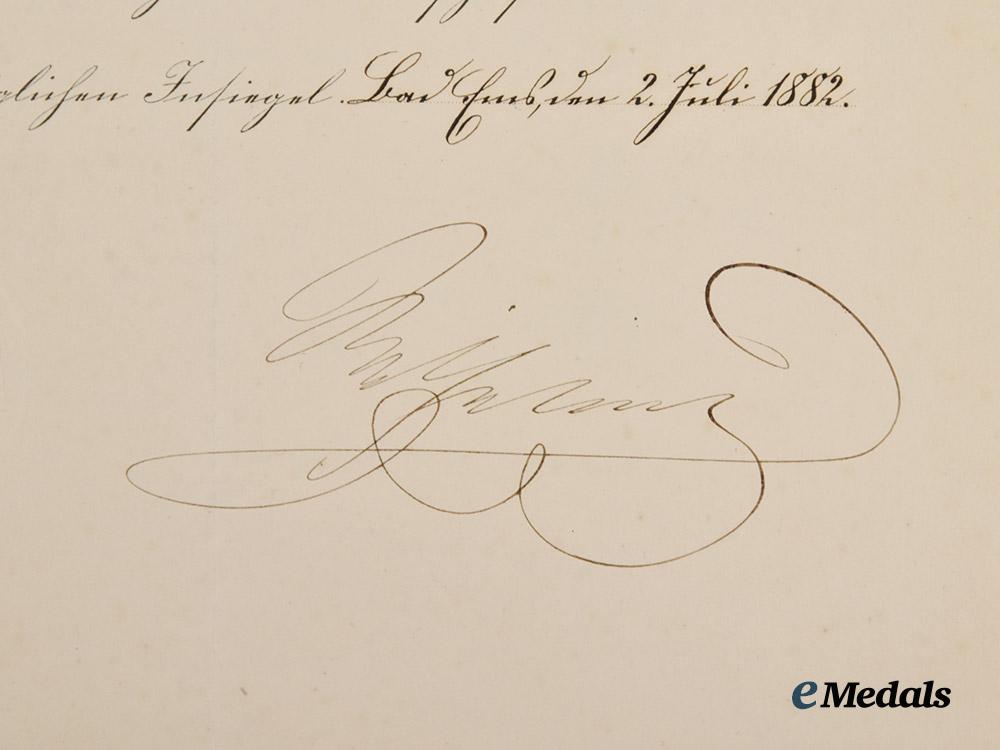 glichen Insiegel. Bad Ems, den 2. Juli 1882.
Wilhelm
eMedals